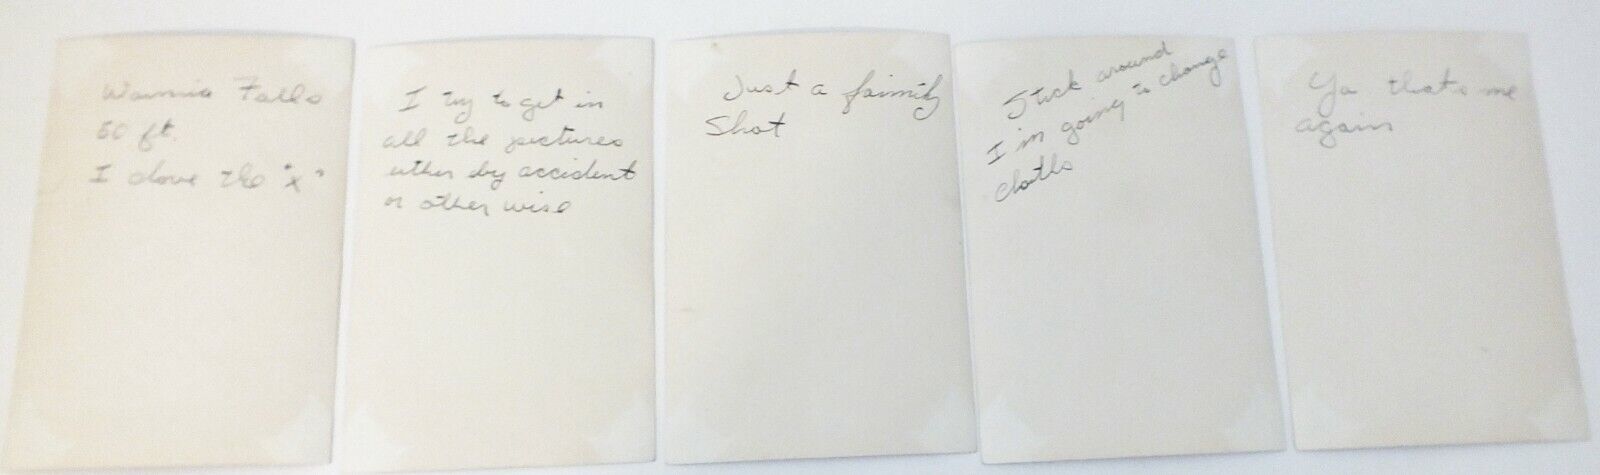 Falls
60 ft.
I dove the "x"
I try to get in
all the pictures
either by accident
or other wise
Just a faimily
Shot
Stick around
I'm going to change
cloths
Ya that's me
again